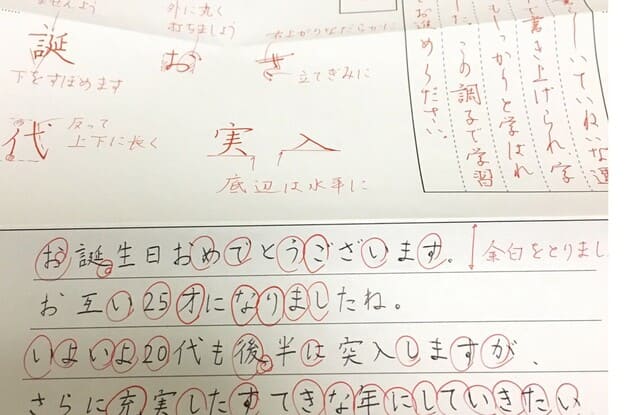 誕
下をすぼめます
外に丸く
打ちましょう
お
右上がりなだらかに
き
立てぎみに
代
反って
上下に長く
実 入
底辺は水平に
しいていねいな運
で書き上げられ字
もしっかりと学ばれ
した。この調子で学習
お進めください。
お誕生日おめでとうございます。
余白をとりまし
お互い25才になりましたね。
いよいよ20代も後半は突入しますが、
さらに充実したすてきな年にしていきたい